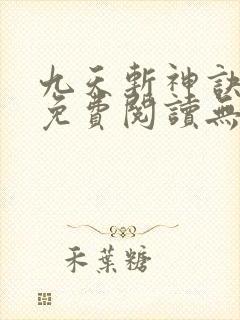 九天斬神訣
免費閱讀無
禾葉糖